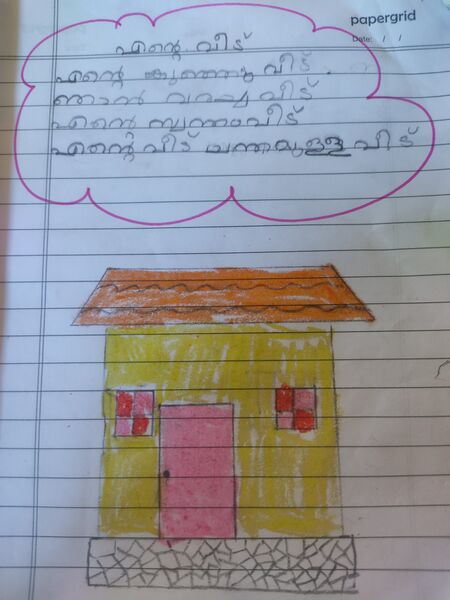 papergrid
Date: / /
എന്റെ വീട്
എന്റെ കുഞ്ഞു വീട്.
ഞാൻ വരച്ച വീട്
എന്റെ സ്വന്തംവീട്
എന്റെവീട് ചന്തമുള്ള വീട്